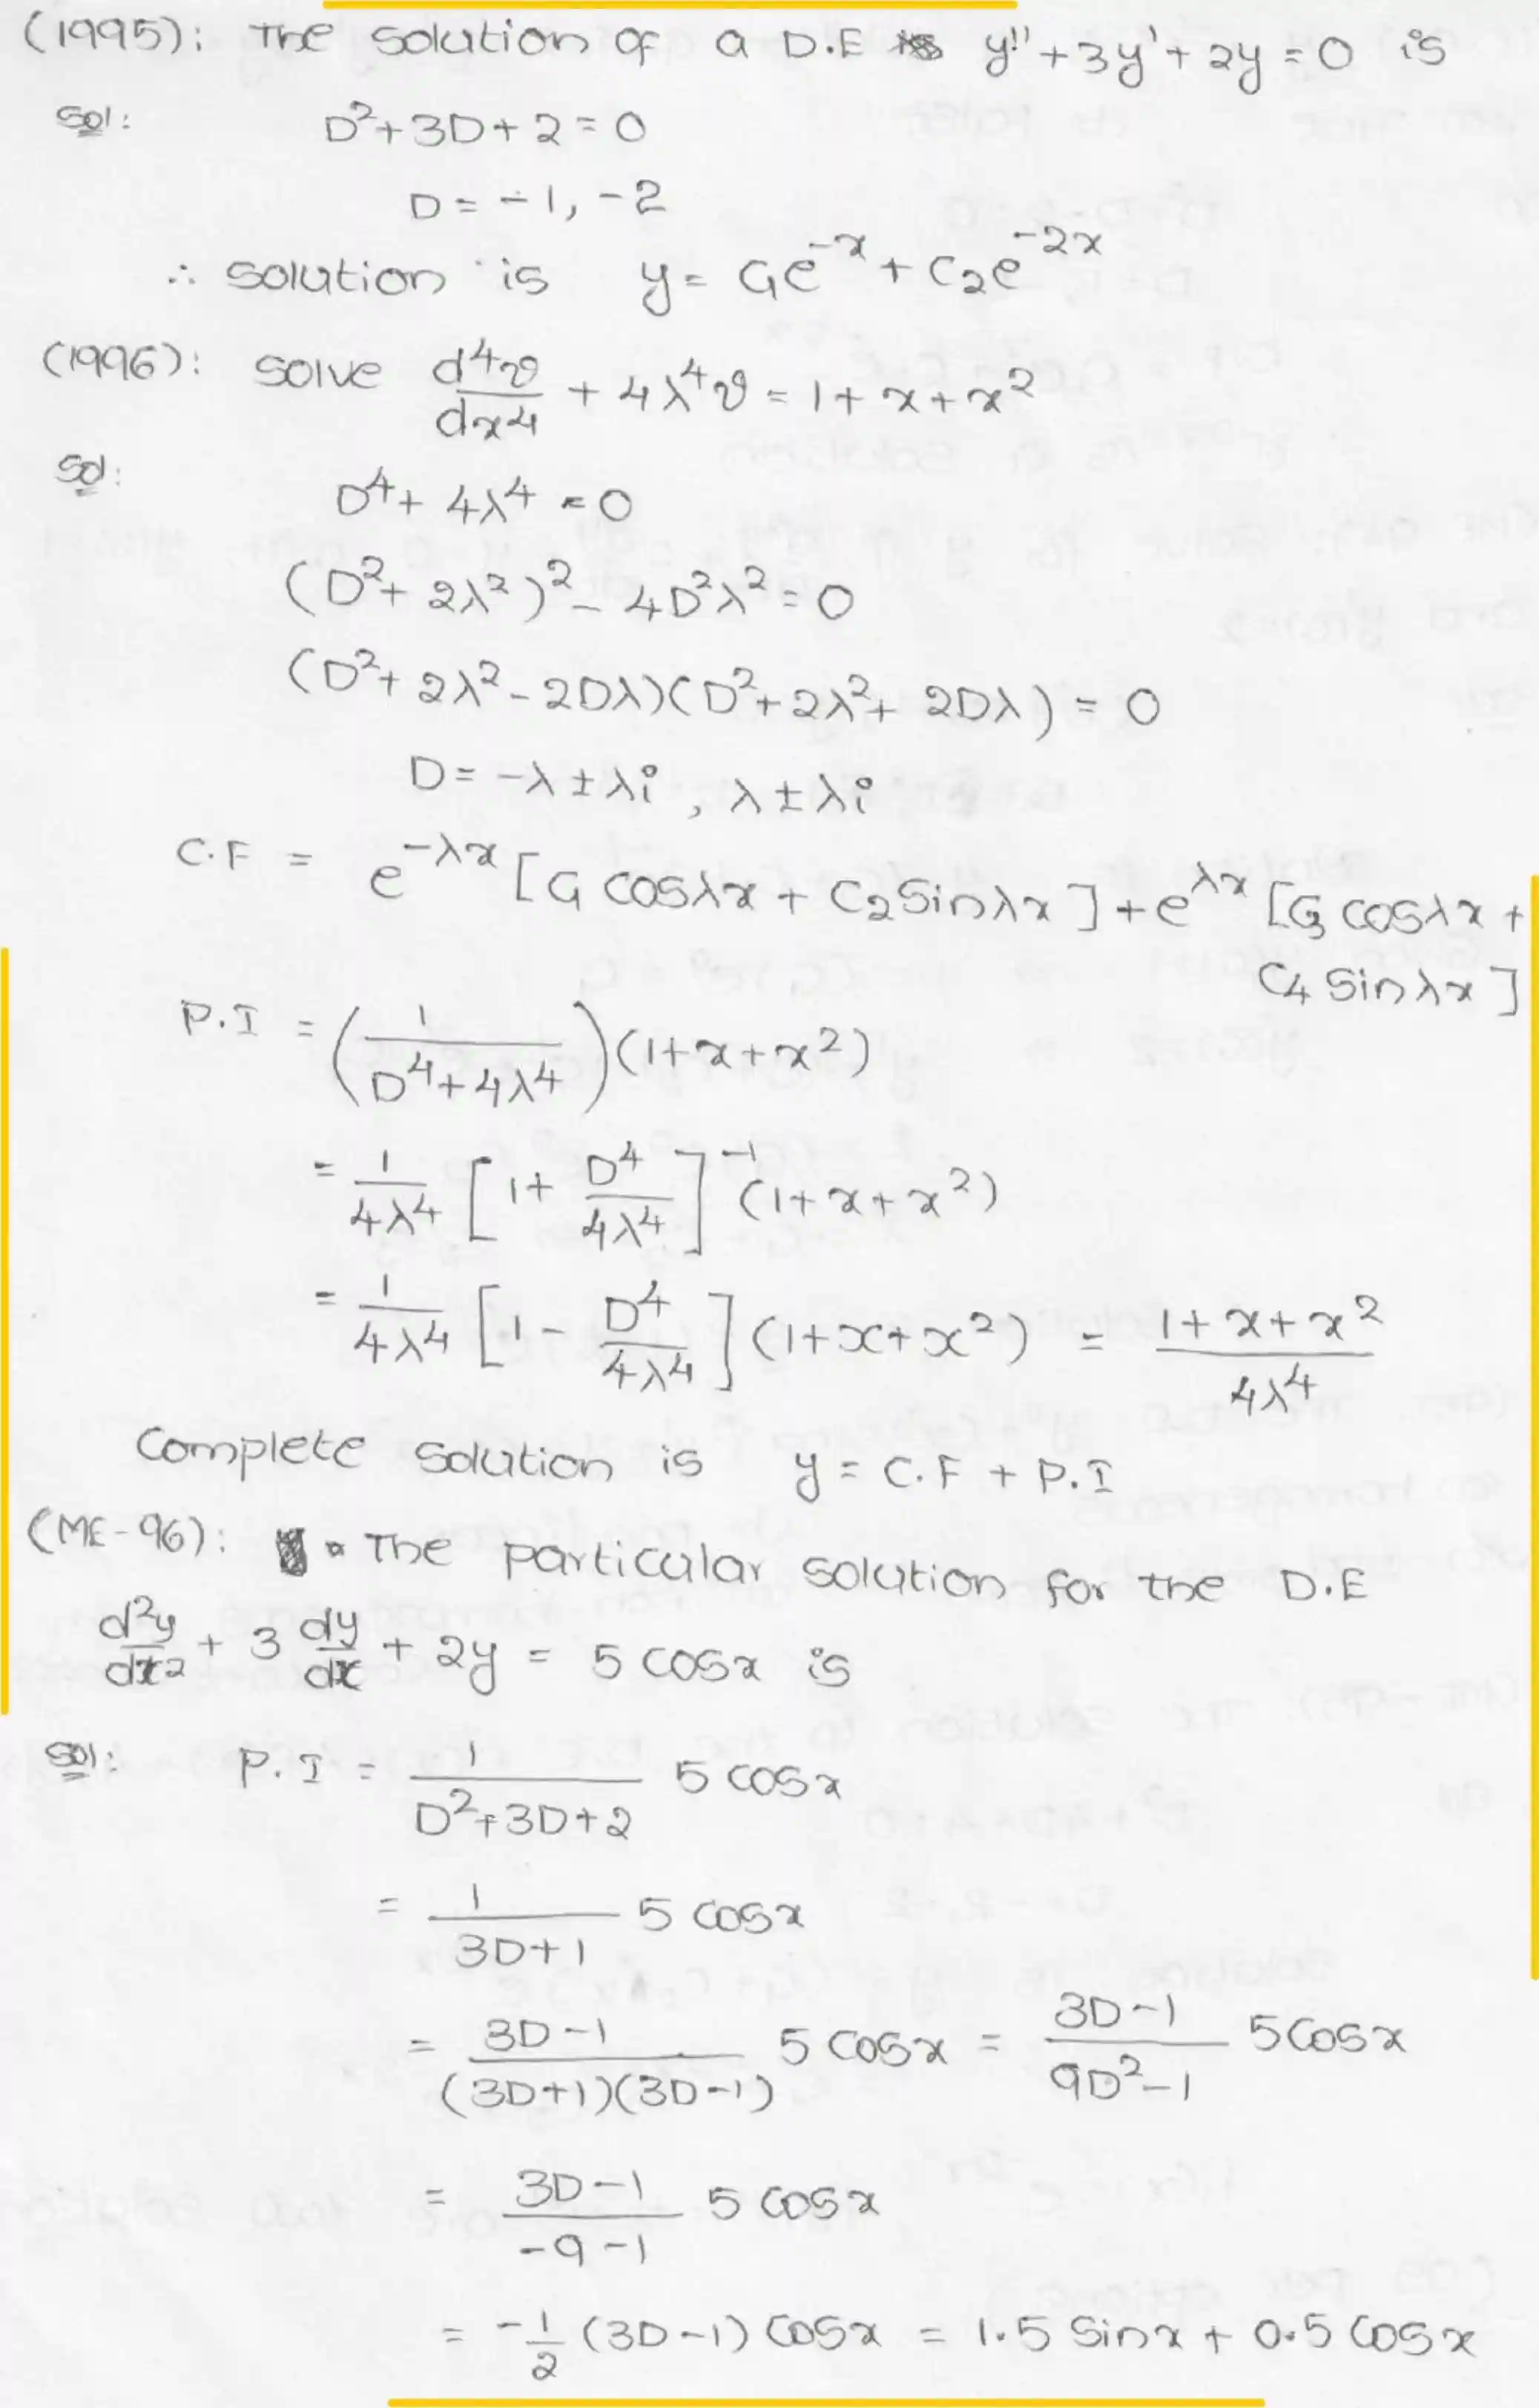 (1995): The solution of a D.E is y'' + 3y' + 2y = 0 is
Sol: D² + 3D + 2 = 0
D = -1, -2
∴ solution is y = C₁e^{-x} + C₂e^{-2x}
(1996): solve d⁴v/dx⁴ + 4λ⁴v = 1 + x + x²
Sol: D⁴ + 4λ⁴ = 0
(D² + 2λ²)² - 4D²λ² = 0
(D² + 2λ² - 2Dλ)(D² + 2λ² + 2Dλ) = 0
D = -λ ± λi, λ ± λi
C.F = e^{-λx} [C₁ cosλx + C₂ Sinλx] + e^{λx} [C₃ cosλx +
C₄ Sinλx]
P.I = (1/(D⁴ + 4λ⁴)) (1 + x + x²)
= 1/4λ⁴ [1 + D⁴/4λ⁴]^{-1} (1 + x + x²)
= 1/4λ⁴ [1 - D⁴/4λ⁴] (1 + x + x²) = (1 + x + x²)/4λ⁴
Complete solution is y = C.F + P.I
(ME-96): The particular solution for the D.E
d²y/dx² + 3 dy/dx + 2y = 5 cosx is
Sol: P.I = 1/(D² + 3D + 2) 5 cosx
= 1/(3D + 1) 5 cosx
= (3D - 1)/((3D + 1)(3D - 1)) 5 cosx = (3D - 1)/(9D² - 1) 5 cosx
= (3D - 1)/(-9 - 1) 5 cosx
= -1/2 (3D - 1) cosx = 1.5 Sinx + 0.5 cosx